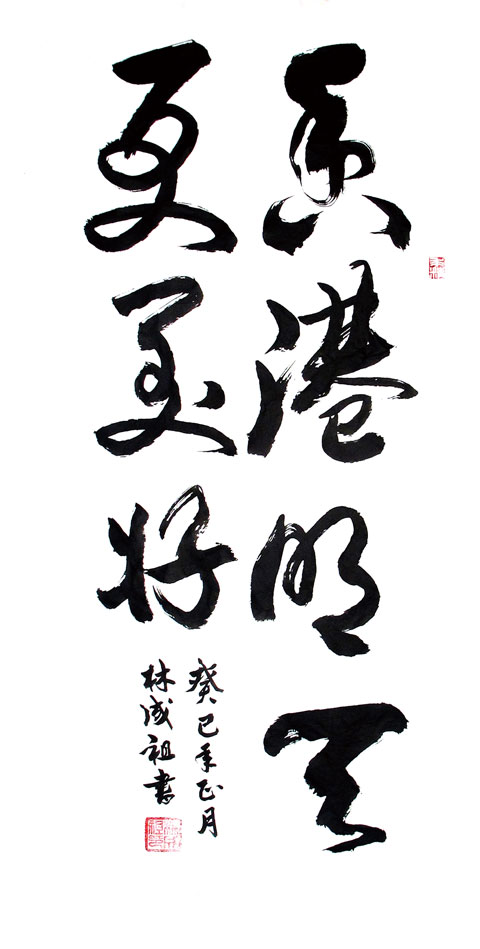 香港明天
更美好
癸巳年正月
林成祖書